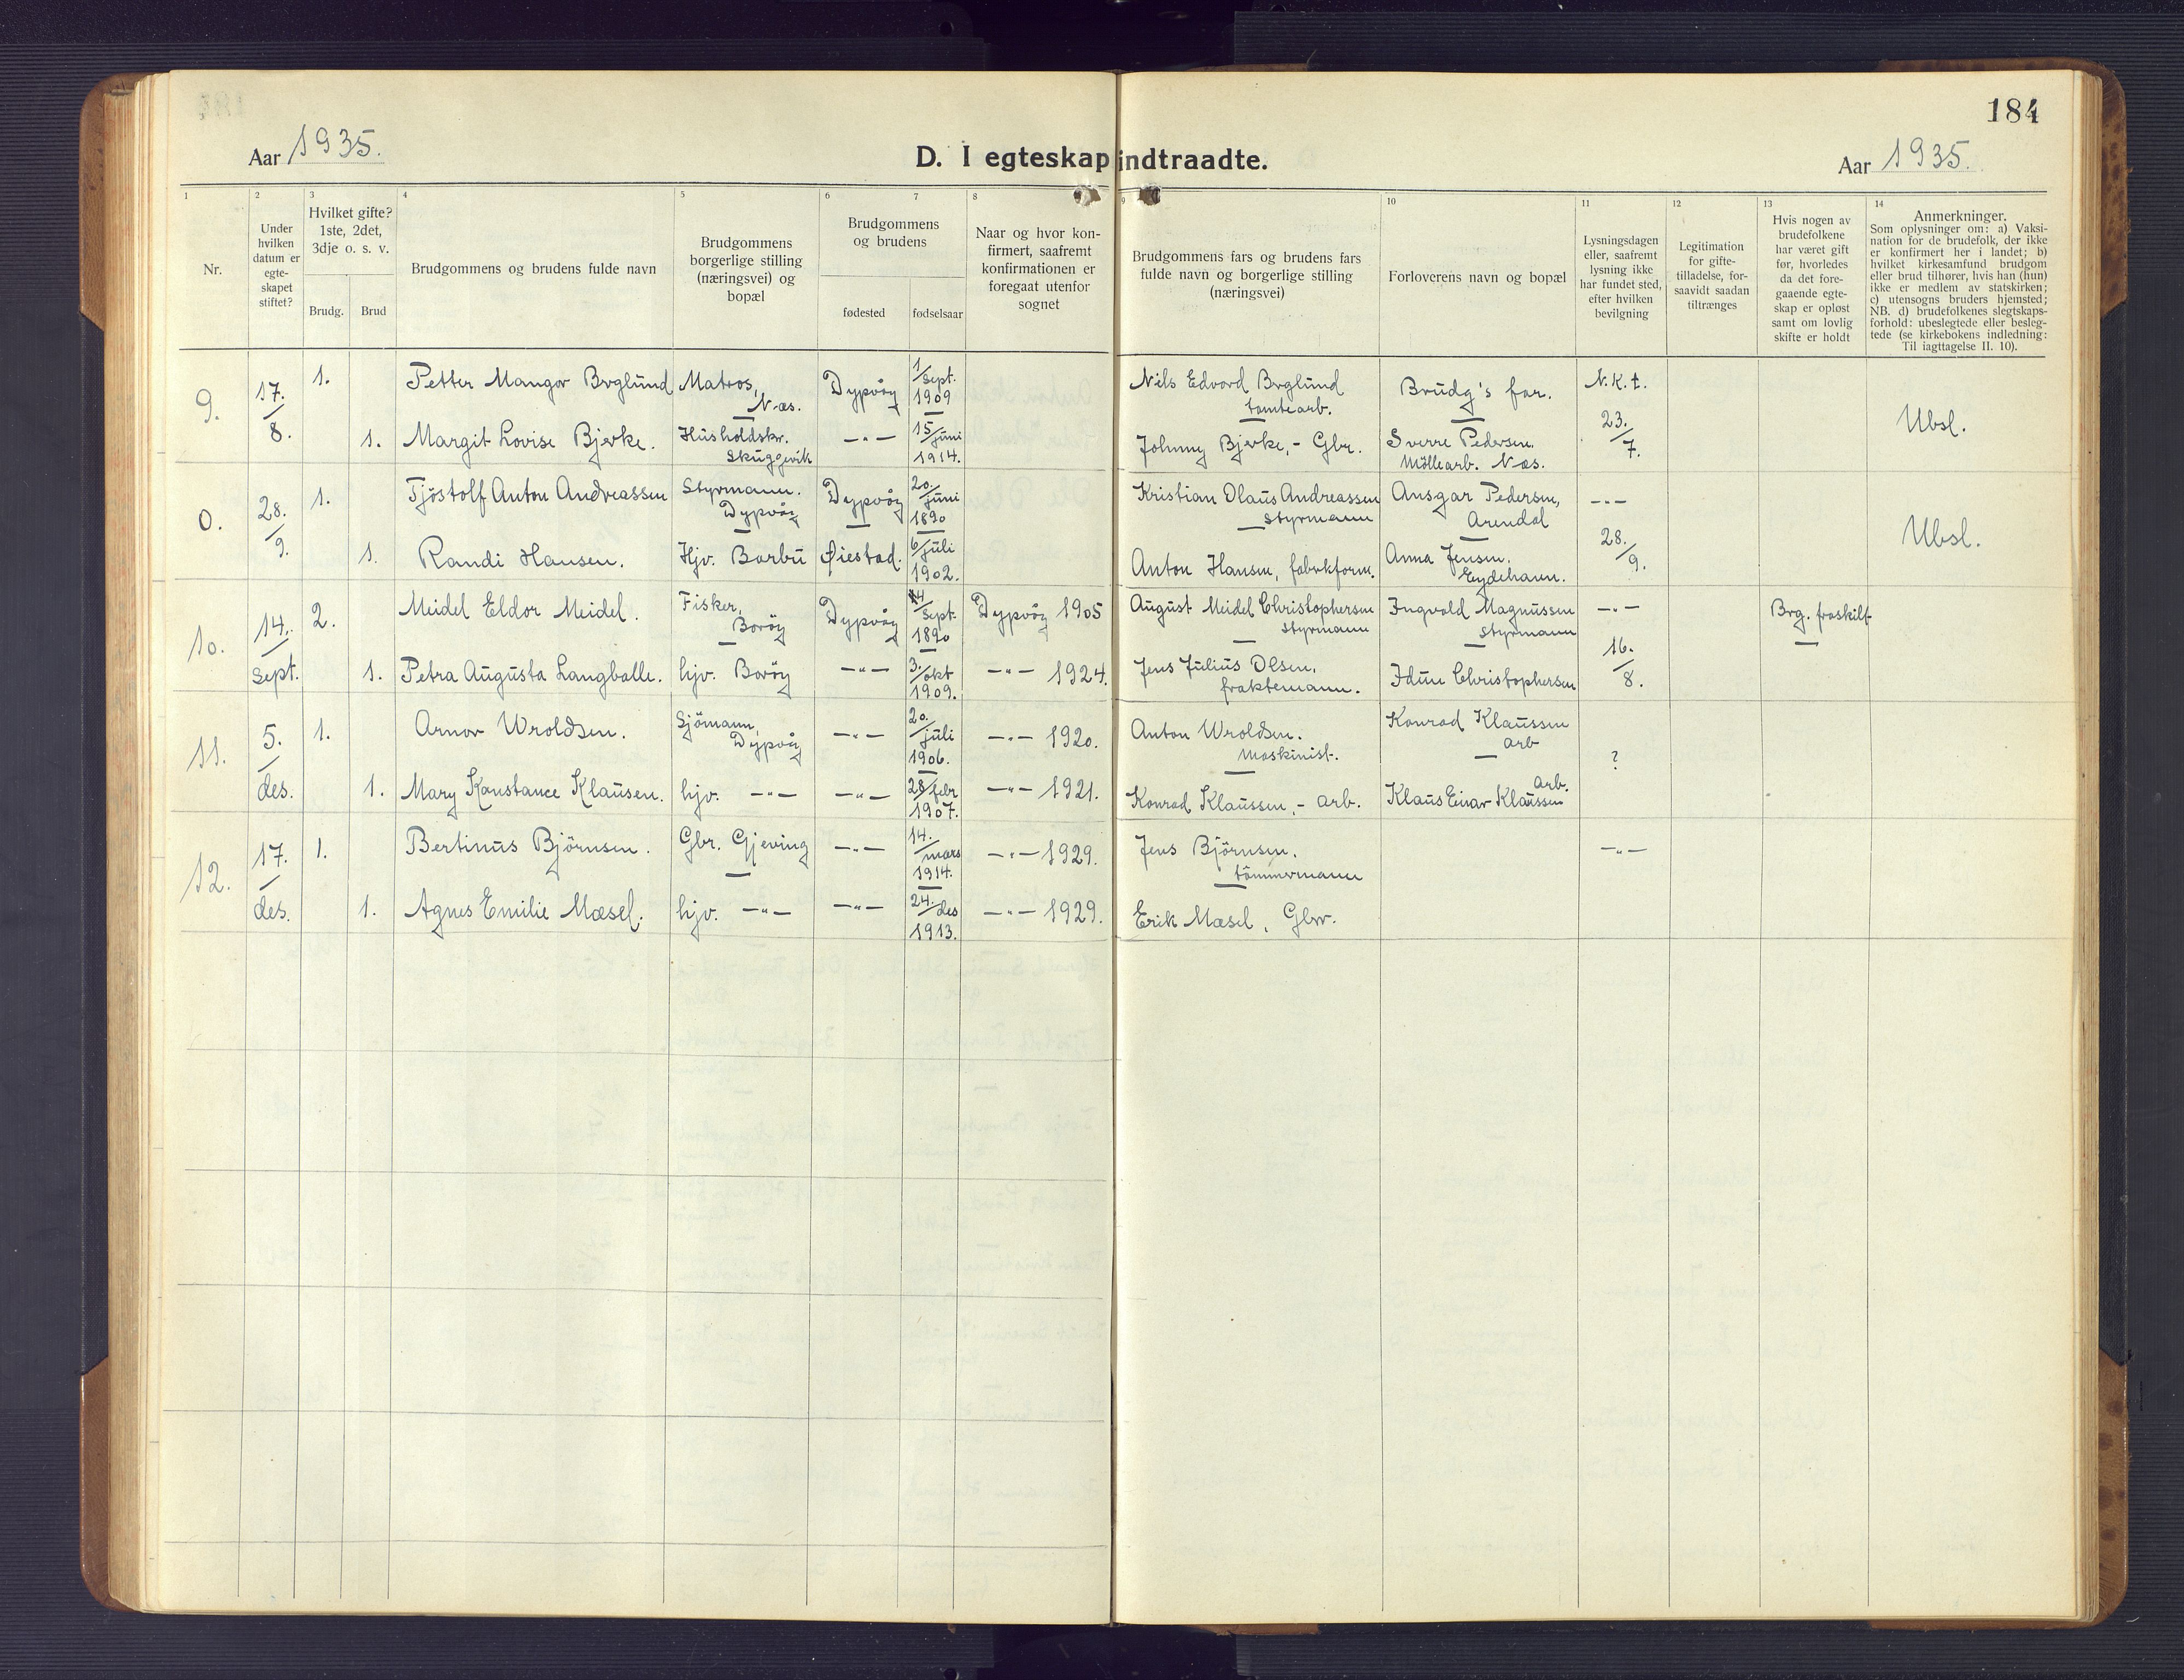 184
Aar 1935.
D. I egteskap indtraadte.
Aar 1935.
1 2 3 4 5 6 7 8 9 10 11 12 13 14
Nr.
Under
hvilken
datum er
egte-
skapet
stiftet?
Hvilket gifte?
1ste, 2det,
3dje o. s. v.
Brudg. Brud
Brudgommens og brudens fulde navn
Brudgommens
borgerlige stilling
(næringsvei) og
bopæl
Brudgommens
og brudens
fødested fødselsaar
Naar og hvor kon-
firmert, saafremt
konfirmationen er
foregaat utenfor
sognet
Brudgommens fars og brudens fars
fulde navn og borgerlige stilling
(næringsvei)
Forloverens navn og bopæl
Lysningsdagen
eller, saafremt
lysning ikke
har fundet sted,
efter hvilken
bevilgning
Legitimation
for gifte-
tilladelse, for-
saavidt saadan
tiltrænges
Hvis nogen av
brudefolkene
har været gift
før, hvorledes
da det fore-
gaaende egte-
skap er opløst
samt om lovlig
skifte er holdt
Anmerkninger.
Som oplysninger om: a) Vaksi-
nation for de brudefolk, der ikke
er konfirmert her i landet; b)
hvilket kirkesamfund brudgom
eller brud tilhører, hvis han (hun)
ikke er medlem av statskirken;
c) utensogns bruders hjemsted;
NB. d) brudefolkenes slegtskaps-
forhold: ubeslegtede eller besleg-
tede (se kirkebokens indledning:
Til iagttagelse II. 10).
9. 17./8. 1. Petter Mangor Berglund Matros, Næs. Dypvåg 1/sept. 1909 Nils Edvard Berglund tomtearb. Brudg's far. N.k.t. Ubsl.
1. Margit Lovise Bjerke. Husholdskr. Skuggevik —"— 15/juni 1914. Johnny Bjerke, - Gbr. Sverre Pedersen. Möllearb. Næs. 23./7.
0. 28./9. 1. Tjöstolf Anton Andreassen Styrmann. Dypvåg Dypvåg 20./juni 1890 Kristian Olaus Andreassen styrmann Ansgar Pedersen, Arendal —"— Ubsl.
1. Randi Hansen. Hjv. Barbu Øiestad. 6/juli 1902. Anton Hansen, fabrkform. Anna Jensen. Eydehavn. 28./9.
10. 14./sept. 2. Meidel Eldor Meidel. Fisker, Borøy Dypvåg 14/sept. 1890 Dypvåg 1905 August Meidel Christophersen styrmann Ingvald Magnussen styrmann —"— Brg. fraskilt
1. Petra Augusta Langballe. hjv. Borøy —"— 3./okt 1909. —"— 1924. Jens Julius Olsen, fraktemann. Idun Christophersen 16./8.
11. 5./des. 1. Arnor Wroldsen. Sjömann, Dypvåg —"— 20./juli 1906. —"— 1920. Anton Wroldsen. maskinist. Konrad Klaussen arb ?
1. Mary Konstance Klausen. hjv. —"— —"— 28/febr 1907. —"— 1921. Konrad Klaussen, - arb. Klaus Einar Klaussen arb.
12. 17./des. 1. Bertinus Björnsen. Gbr. Gjeving —"— 14./mars 1914. —"— 1929. Jens Björnsen. tömmermann —"—
1. Agnes Emilie Mæsel. hjv. —"— —"— 24./des 1913. —"— 1929. Erik Mæsel, Gbr.